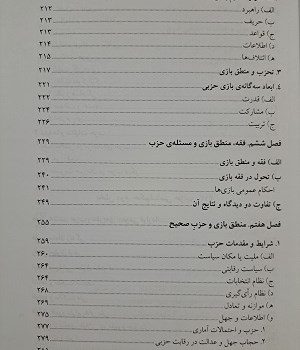 الف) راهبرد ۲۱۲
ب) حریف ۲۱۳
ج) قواعد ۲۱۳
د) اطلاعات ۲۱۴
ه) ائتلاف‌ها ۲۱۵
۳. تحزب و منطق بازی ۲۱۷
۴. ابعاد سه‌گانه‌ی بازی حزبی ۲۲۱
الف) قدرت ۲۲۲
ب) مشارکت ۲۲۴
ج) تربیت ۲۲۶
فصل ششم. فقه، منطق بازی و مسئله‌ی حزب ۲۲۹
الف) فقه و منطق بازی ۲۲۹
ب) تحول در فقه بازی ۲۴۰
احکام عمومی بازی‌ها ۲۴۱
ج) تفاوت دو دیدگاه و نتایج آن ۲۴۹
فصل هفتم. منطق بازی و حزب صحیح ۲۵۵
۱. شرایط و مقدمات حزب ۲۵۹
الف) ملیت یا مکان سیاست ۲۶۰
ب) سیاست رقابتی ۲۶۴
ج) نظام انتخابات ۲۶۴
د) نظام رأی‌گیری ۲۶۸
ه) موازنه و تعادل ۲۶۹
و) اطلاعات و جهل ۲۷۵
۱. حزب و احتمالات آماری ۲۷۷
۲. حجاب جهل و عدالت در رقابت حزبی ۲۷۹